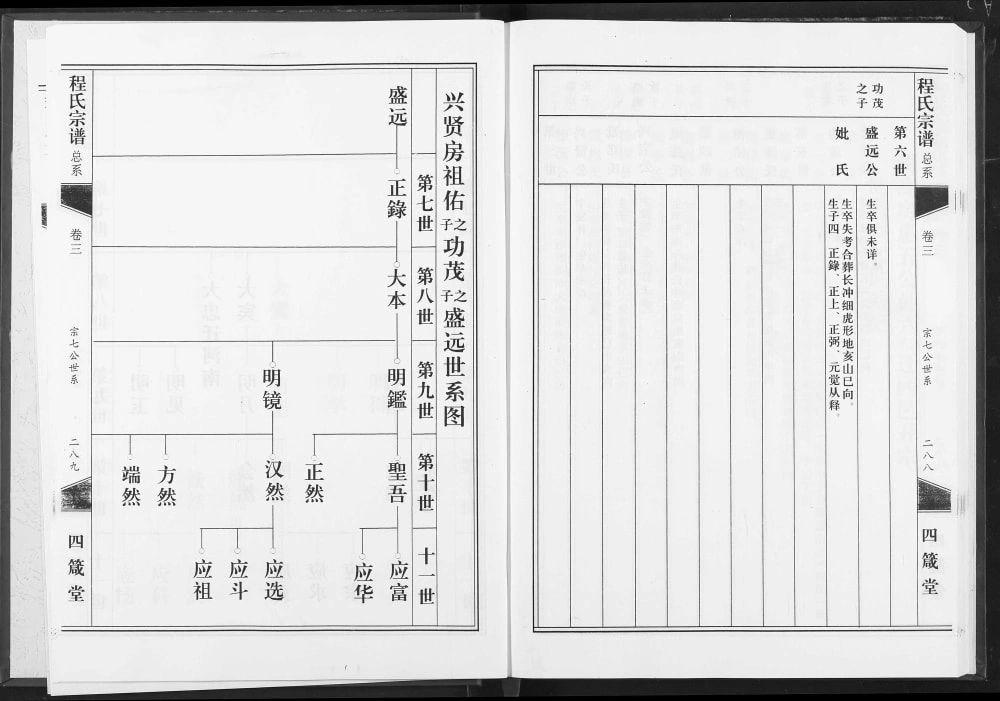 程氏宗谱
总系
卷三
宗七公世系
二八八
四箴堂
功茂
之子
第六世
盛远公
生卒俱未详。
妣氏
生卒失考合葬长冲细虎形地亥山巳向。
生子四 正錄、正上、正弼、元觉从释。
兴贤房祖佑之子功茂之子盛远世系图
第七世
第八世
第九世
第十世
十一世
盛远
正錄
大本
明鑑
聖吾
应富
应华
正然
明镜
汉然
应选
应斗
应祖
方然
端然
程氏宗谱
总系
卷三
宗七公世系
二八九
四箴堂